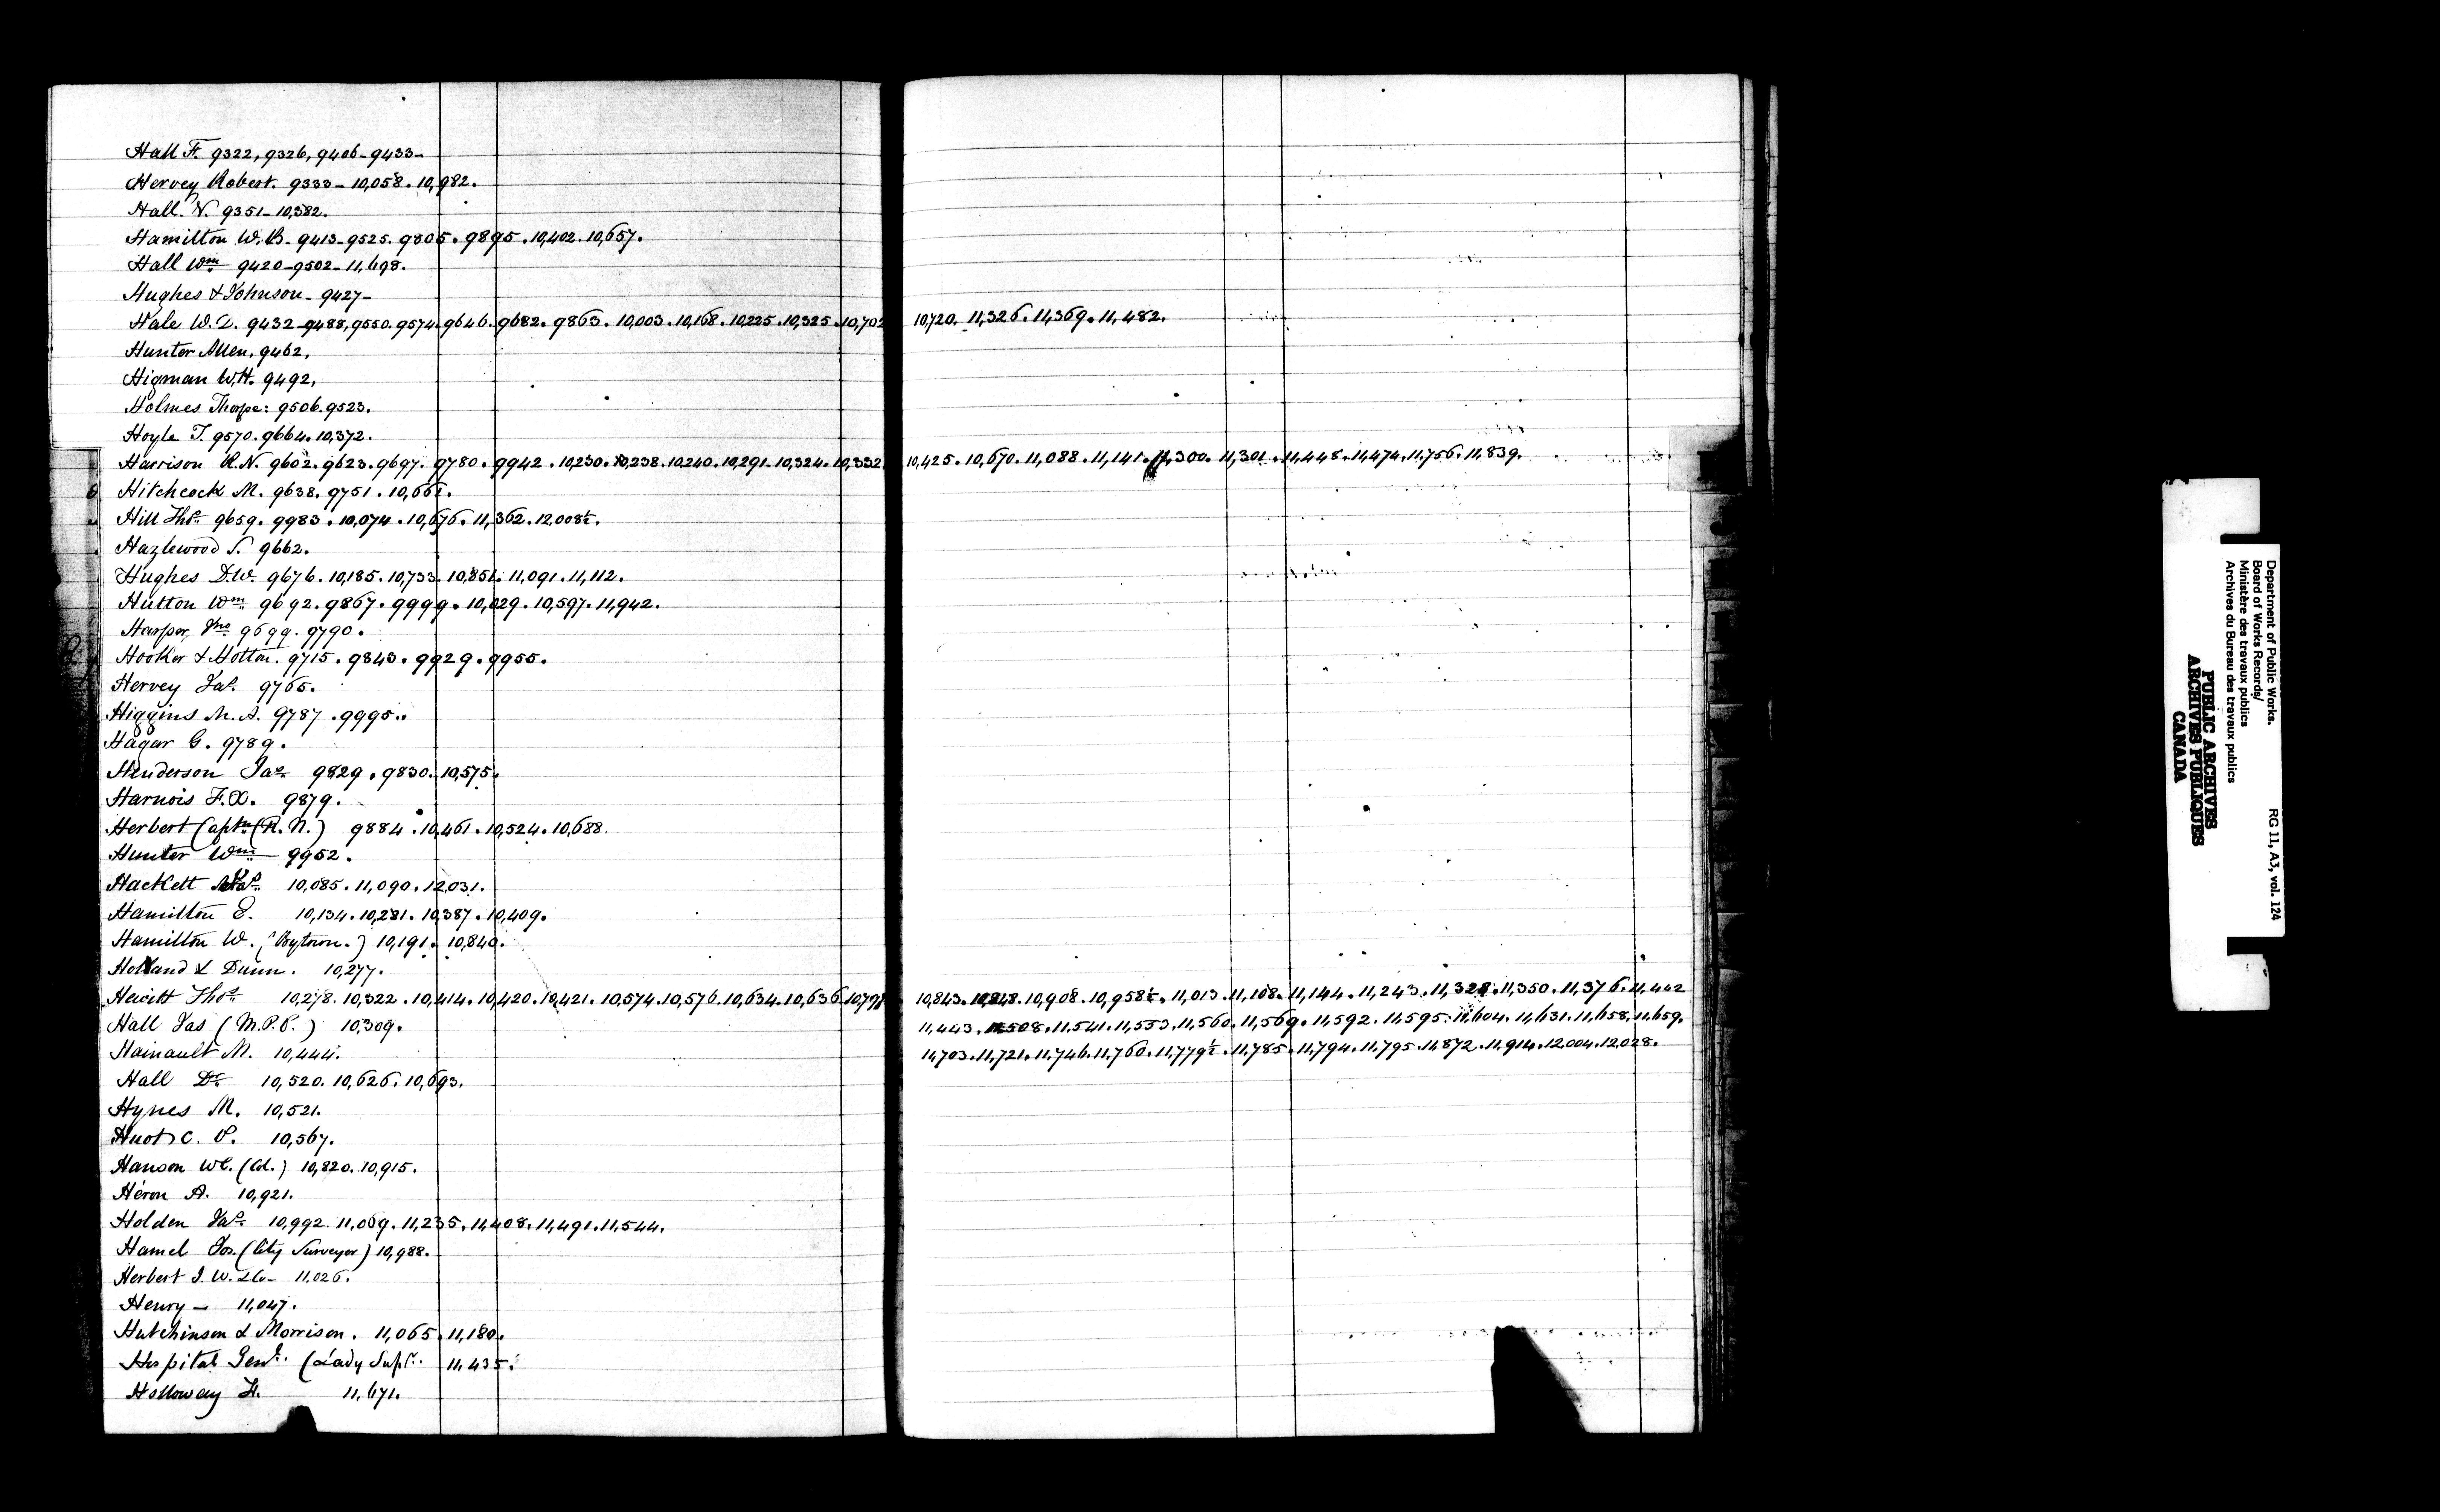 Hall F. 9322, 9326, 9406-9433-
Hervey Robert. 9333-10,058. 10,982.
Hall. N. 9351-10,382.
Hamilton W. B. 9413-9525. 9805. 9895. 10,402. 10,657.
Hall Wm 9420-9502-11,698.
Hughes & Johnson-9427-
Hale W. D. 9432-9488, 9550. 9574. 9646. 9682. 9863. 10,003. 10,168. 10,225. 10,325. 10,702 10,720. 11,326. 11,369. 11,482.
Hunter Allen. 9462.
Higman W.H. 9492.
Holmes Thorpe: 9506. 9523.
Hoyle T. 9570. 9664. 10,372.
Harrison R.N. 9602. 9623. 9697. 9780. 9942. 10,230. 10,238. 10,240. 10,291. 10,324. 10,332 10,425. 10,670. 11,088. 11,141. 11,300. 11,301. 11,448. 11,474. 11,756. 11,839.
Hitchcock M. 9638. 9751. 10,661.
Hill Thos 9659. 9983. 10,074. 10,676. 11,362. 12,008½.
Hazlewood S. 9662.
Hughes D.W. 9676. 10,185. 10,733. 10,851. 11,091. 11,112.
Hutton Wm 9692. 9867. 9999. 10,029. 10,597. 11,942.
Harper, Jno 9699. 9790.
Hooker & Holton. 9715. 9843. 9929. 9955.
Hervey Jas. 9765.
Higgins M. A. 9787. 9995.
Hagar G. 9789.
Henderson Jas 9829. 9830. 10,575.
Harnois F.X. 9879.
Herbert Captn (R.N.) 9884. 10,461. 10,524. 10,688.
Hunter Wm 9952.
Hackett 10,085. 11,090. 12,031.
Hamilton E. 10,134. 10,281. 10,387. 10,409.
Hamilton W. (Bytown.) 10,191. 10,840.
Holland & Dunn. 10,277.
Hewitt Thos 10,278. 10,322. 10,414. 10,420. 10,421. 10,574. 10,576. 10,634. 10,636. 10,843. 10,848. 10,908. 10,958½. 11,013. 11,108. 11,144. 11,243. 11,328. 11,350. 11,376. 11,442
Hall Jas (M.P.P.) 10,309.
11,443. 11,508. 11,541. 11,553. 11,560. 11,569. 11,592. 11,595. 11,604. 11,631. 11,658. 11,659.
Hainault M. 10,444.
11,703. 11,721. 11,746. 11,760. 11,779½. 11,785. 11,794. 11,795. 11,872. 11,914. 12,004. 12,028.
Hall Dr 10,520. 10,626. 10,693.
Hynes M. 10,521.
Huot C. P. 10,567.
Hanson WC. (Col.) 10,820. 10,915.
Héron A. 10,921.
Holden Jas 10,992. 11,069. 11,235. 11,408. 11,491. 11,544.
Hamel Jos. (City Surveyor) 10,988.
Herbert J. W. &Co- 11,026.
Henry - 11,047.
Hutchinson & Morrison. 11,065. 11,180.
Hospital Genl. (Lady Supr. 11,435.
Holloway H. 11,671.
Department of Public Works.
Board of Works Records/
Ministère des travaux publics
Archives du Bureau des travaux publics
RG 11, A3, vol. 124
PUBLIC ARCHIVES
ARCHIVES PUBLIQUES
CANADA